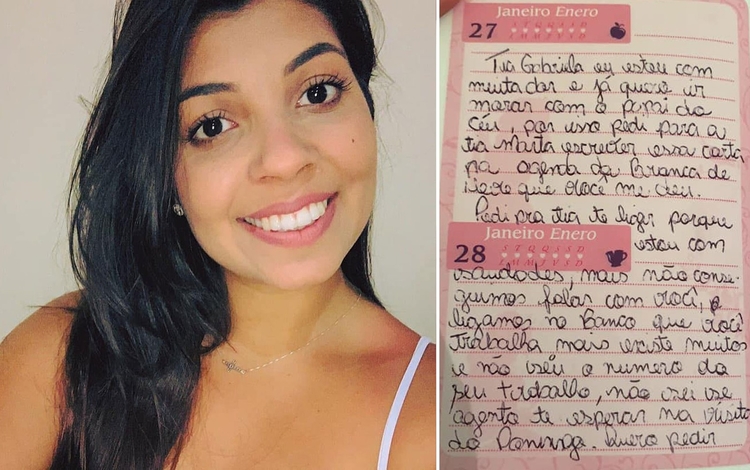 Janeiro Enero
27
S T Q Q S S D
L M M J V S D
Tia Gabriela eu estou com
muita dor e já quero ir
morar com o papai do
céu, por isso pedi para a
tia Marta escrever essa carta
na agenda da Branca de
Neve que você me deu.
Pedi pra tia te ligar porque
Janeiro Enero
28
S T Q Q S S D
L M M J V S D
estou com
saudades, mais não conse-
guimos falar com você, e
ligamos no Banco que você
trabalha mais existe muitos
e não sei o numero do
seu trabalho, não sei se
agento te esperar na visita
do Domingo. Quero pedir